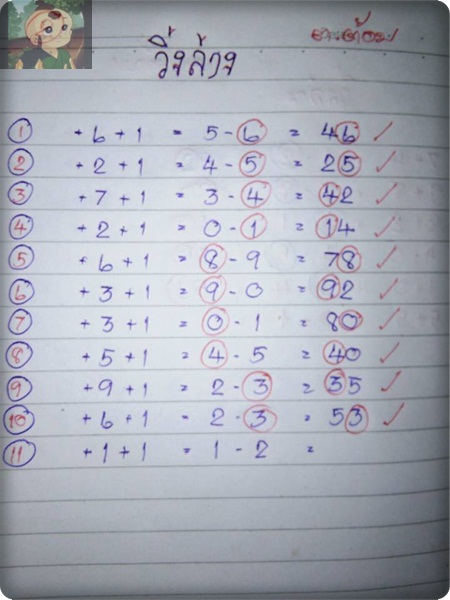 วิ่งล่าง
① +6+1 = 5-6 = 46 ✓
② +2+1 = 4-5 = 25 ✓
③ +7+1 = 3-4 = 42 ✓
④ +2+1 = 0-1 = 14 ✓
⑤ +6+1 = 8-9 = 78 ✓
⑥ +3+1 = 9-0 = 92 ✓
⑦ +3+1 = 0-1 = 80 ✓
⑧ +5+1 = 4-5 = 40 ✓
⑨ +9+1 = 2-3 = 35 ✓
⑩ +6+1 = 2-3 = 53 ✓
⑪ +1+1 = 1-2 =